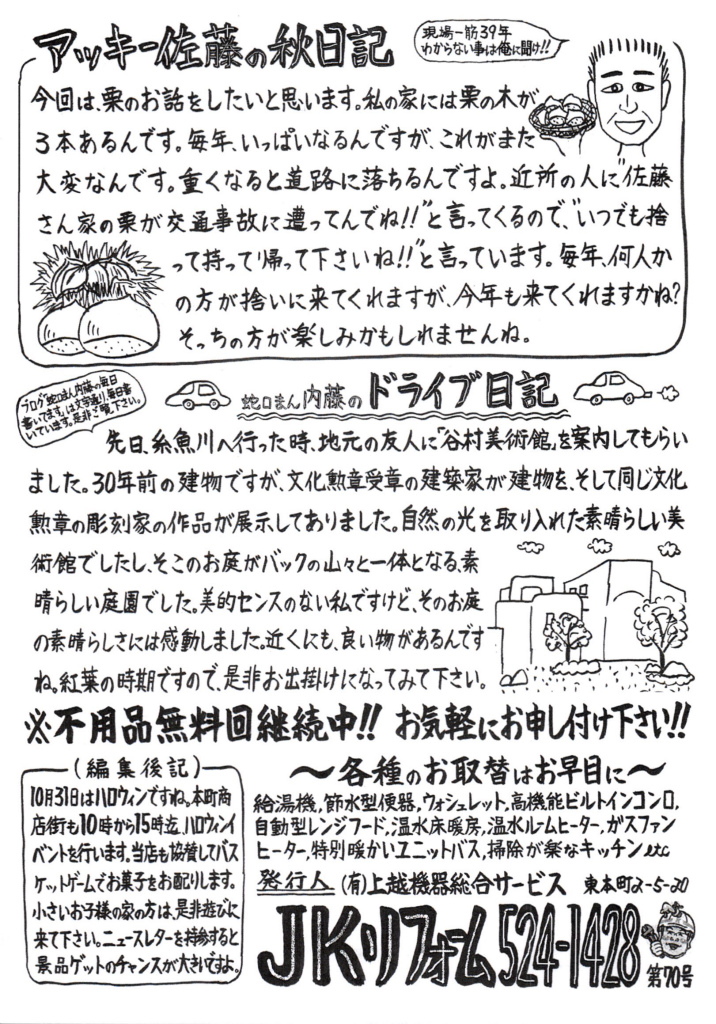 アッキー佐藤の秋日記
現場一筋39年
わからない事は俺に聞け!!
今回は、栗のお話をしたいと思います。私の家には栗の木が
3本あるんです。毎年、いっぱいなるんですが、これがまた
大変なんです。重くなると道路に落ちるんですよ。近所の人に"佐藤
さん家の栗が交通事故に遭ってんでね!!"と言ってくるので、"いつでも捨
って持って帰って下さいね!!"と言っています。毎年、何人か
の方が捨いに来てくれますが、今年も来てくれますかね?
そっちの方が楽しみかもしれませんね。
ブログ蛇口まん内藤の毎日
書いてます。は文字通り、毎日書
いています。是非ご覧下さい。
蛇口まん内藤のドライブ日記
先日、糸魚川へ行った時、地元の友人に「谷村美術館」を案内してもらい
ました。30年前の建物ですが、文化勲章受章の建築家が建物を、そして同じ文化
勲章の彫刻家の作品が展示してありました。自然の光を取り入れた素晴らしい美
術館でしたし、そこのお庭がバックの山々と一体となる、素
晴らしい庭園でした。美的センスのない私ですけど、そのお庭
の素晴らしさには感動しました。近くにも、良い物があるんです
ね。紅葉の時期ですので、是非お出掛けになってみて下さい。
※不用品無料回継続中!! お気軽にお申し付け下さい!!
(編集後記)
10月31日はハロウィンですね。本町商
店街も10時から15時迄、ハロウィンイ
ベントを行います。当店も協賛してバス
ケットゲームでお菓子をお配りします。
小さいお子様の家の方は、是非遊びに
来て下さい。ニュースレターを持参すると
景品ゲットのチャンスが大きいですよ。
〜各種のお取替はお早目に〜
給湯機,節水型便器,ウォシュレット,高機能ビルトインコンロ,
自動型レンジフード,温水床暖房,温水ルームヒーター,ガスファン
ヒーター,特別暖かいユニットバス,掃除が楽なキッチンetc
発行人 (有)上越機器総合サービス 東本町2-5-20
JKリフォーム 524-1428
第70号